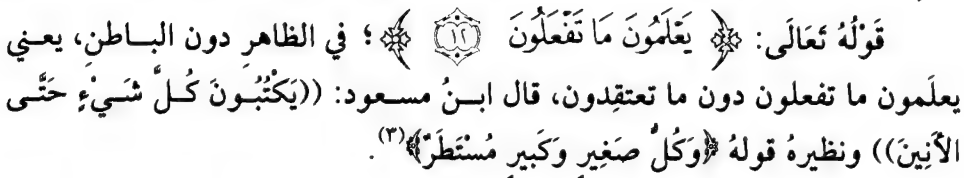 قَوْلُهُ تَعَالَى: ﴿ يَعْلَمُونَ مَا تَفْعَلُونَ ۝١٢ ﴾ ؛ في الظاهرِ دون البــاطنِ، يعني
يعلَمون ما تفعلون دون ما تعتقِدون، قال ابــنُ مســعود: ((يَكْتُبُــونَ كُــلَّ شَــيْءٍ حَتَّــى
الأَنِينَ)) ونظيرهُ قولهُ ﴿وَكُلُّ صَغِيرٍ وَكَبِيرٍ مُسْتَطَرٌ﴾(٣).